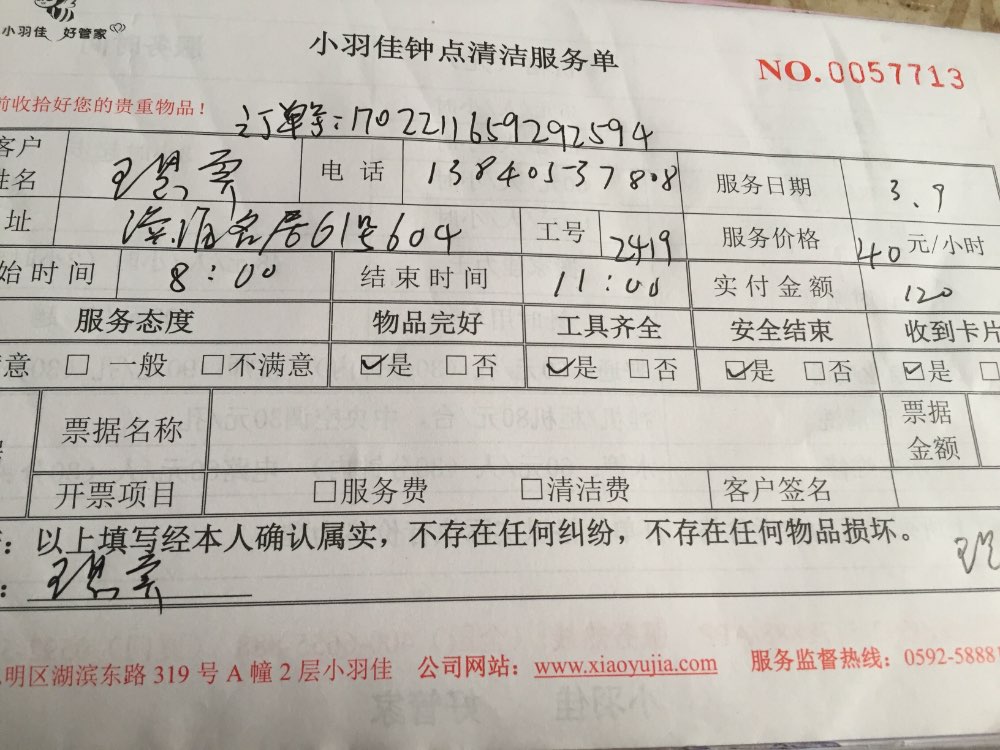 小羽佳 好管家
小羽佳钟点清洁服务单
NO.0057713
前收拾好您的贵重物品！
订单号：1702211659292594
客户姓名 电话 13840537808 服务日期 3.9
址 名居61号604 工号 2419 服务价格 40元/小时
始时间 8:00 结束时间 11:00 实付金额 120
服务态度 物品完好 工具齐全 安全结束 收到卡片
意 □一般 □不满意 ☑是 □否 ☑是 □否 ☑是 □否 ☑是 □
票据名称 票据金额
开票项目 □服务费 □清洁费 客户签名
：以上填写经本人确认属实，不存在任何纠纷，不存在任何物品损坏。
明区湖滨东路 319 号 A 幢 2 层小羽佳 公司网站：www.xiaoyujia.com 服务监督热线：0592-58881